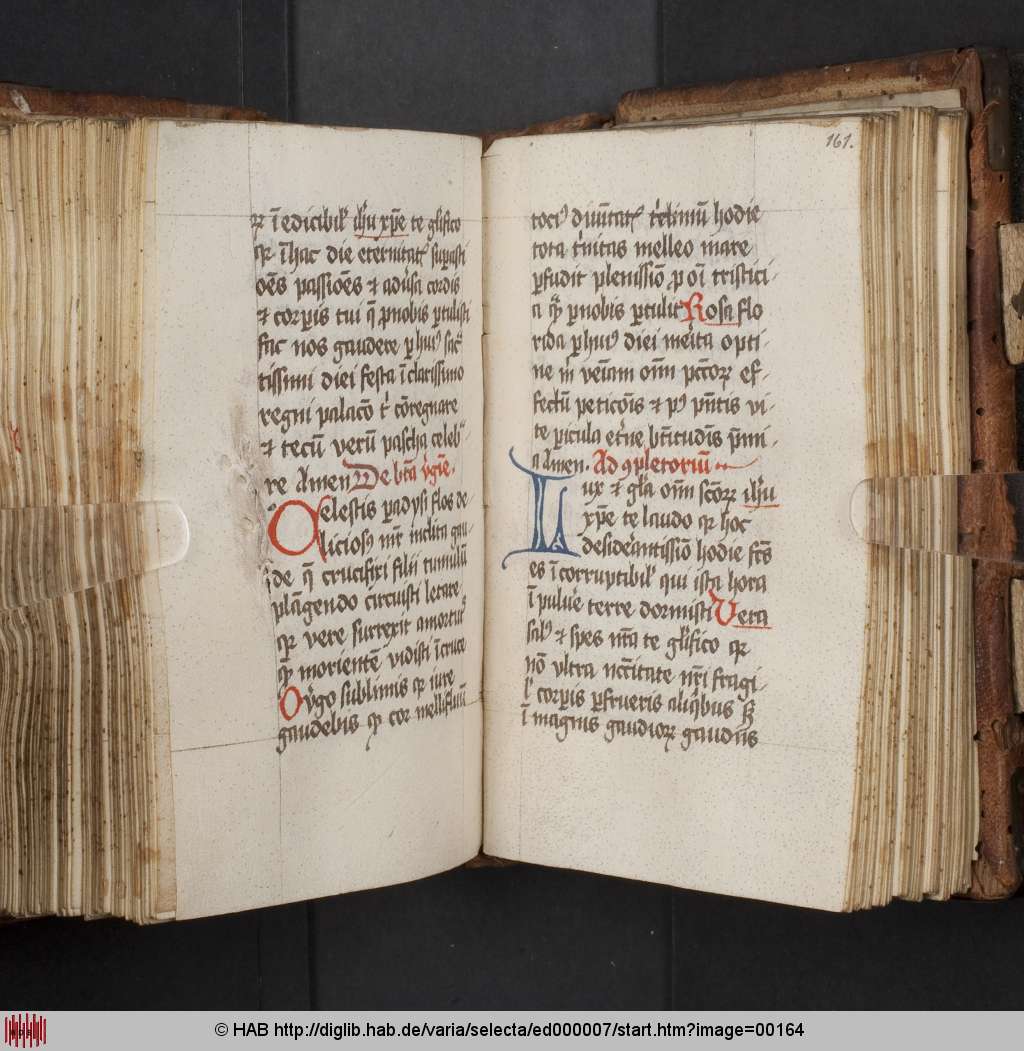 et īedicibil' ih'u xp̄e te gl'ifico
qr ī hac die eternitat' supasti
oēs passiōes & adūsa cordis
& corpis tui q̄ pnobis ptulisti
fac nos gaudere p hui' sac
tissimi diei festa ī clarissimo
regni palacō t' cōregnare
& tecū verū pascha celeb
re Amen De btā v'gīe.
Celestis padysi flos de
licios' mr̄ inclita gau
de q̄ crucifixi filii tumulū
plāgendo circuisti letare
qr vere surrexit amortu'
qm̄ morientē vidisti ī cruce
O v'go sublimis qr iure
gaudebis qr cor mellifluū
161.
toci' diuītat' t'cliniū hodie
tota t'nitas melleo mare
pfudit plenissīo p oī tristici
a qm̄ pnobis ptulit Rosa flo
rida p hui' diei mer'ita opti
ne m̄ veīam oīm pctōr' ef
fectū peticōis & p' pn̄tis vi
te picula et'ne bt̄itudīs p̄mi
a Amen. Ad 9pletoriū
Lux & gl'a oīm sctōr' ih'u
xp̄e te laudo qr hoc
desiderantissīo hodie fct̄s
es ī corruptibil' qui ista hora
ī puluē terre dormisti Vera
sal' & spes nr̄a te gl'ifico qr
nō vltra nccītate nr̄i fragi
l' corpis pfrueris aliq'bus s'
ī magnis gaudior' gaudiis
© HAB http://diglib.hab.de/varia/selecta/ed000007/start.htm?image=00164